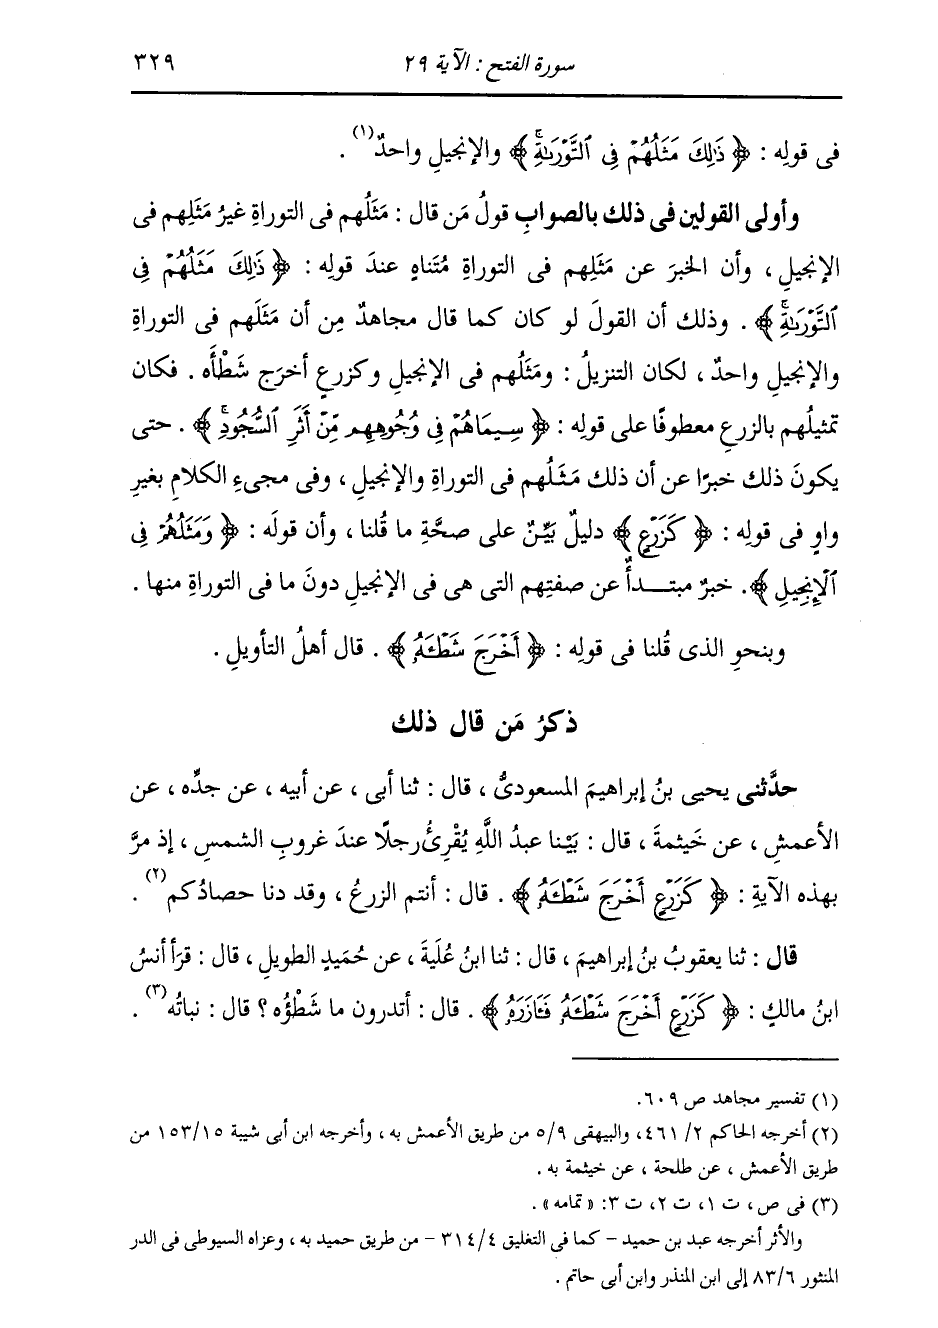 سورة الفتح : الآية ٢٩ ٣٢٩
فى قولِه : ﴿ ذَٰلِكَ مَثَلُهُمْ فِى ٱلتَّوْرَىٰةِۚ ﴾ والإنجيلِ واحدٌ(١) .
وأولى القولين فى ذلك بالصوابِ قولُ مَن قال : مَثَلُهم فى التوراةِ غيرُ مَثَلِهم فى
الإنجيلِ ، وأن الخبرَ عن مَثَلِهم فى التوراةِ مُتَناهٍ عندَ قولِه : ﴿ ذَٰلِكَ مَثَلُهُمْ فِى
ٱلتَّوْرَىٰةِۚ ﴾ . وذلك أن القولَ لو كان كما قال مجاهدٌ مِن أن مَثَلَهم فى التوراةِ
والإنجيلِ واحدٌ ، لكان التنزيلُ : ومَثَلُهم فى الإنجيلِ وكزرعٍ أخرَج شَطْأَه . فكان
تمثيلُهم بالزرعِ معطوفًا على قولِه : ﴿ سِيمَاهُمْ فِى وُجُوهِهِم مِّنْ أَثَرِ ٱلسُّجُودِۚ ﴾ . حتى
يكونَ ذلك خبرًا عن أن ذلك مَثَلُهم فى التوراةِ والإنجيلِ ، وفى مجىءِ الكلامِ بغيرِ
واوٍ فى قولِه : ﴿ كَزَرْعٍ ﴾ دليلٌ بَيِّنٌ على صحَّةِ ما قُلنا ، وأن قولَه : ﴿ وَمَثَلُهُمْ فِى
ٱلْإِنجِيلِ ﴾ . خبرٌ مبتــدأٌ عن صفتِهم التى هى فى الإنجيلِ دونَ ما فى التوراةِ منها .
وبنحوِ الذى قُلنا فى قولِه : ﴿ أَخْرَجَ شَطْـَٔهُۥ ﴾ . قال أهلُ التأويلِ .
ذكرُ مَن قال ذلك
حدَّثنى يحيى بنُ إبراهيمَ المسعودىُّ ، قال : ثنا أبى ، عن أبيه ، عن جدِّه ، عن
الأعمشِ ، عن خَيثمةَ ، قال : بَيْنا عبدُ اللَّهِ يُقْرِئُ رجلًا عندَ غروبِ الشمسِ ، إذ مرَّ
بهذه الآيةِ : ﴿ كَزَرْعٍ أَخْرَجَ شَطْـَٔهُۥ ﴾ . قال : أنتم الزرعُ ، وقد دنا حصادُكم(٢) .
قال : ثنا يعقوبُ بنُ إبراهيمَ ، قال : ثنا ابنُ عُلَيةَ ، عن حُمَيدٍ الطويلِ ، قال : قرَأ أنسُ
ابنُ مالكٍ : ﴿ كَزَرْعٍ أَخْرَجَ شَطْـَٔهُۥ فَـَٔازَرَهُۥ ﴾ . قال : أتدرون ما شَطْؤُه ؟ قال : نباتُه(٣) .
(١) تفسير مجاهد ص ٦٠٩.
(٢) أخرجه الحاكم ٢/ ٤٦١، والبيهقى ٥/٩ من طريق الأعمش به ، وأخرجه ابن أبى شيبة ١٥٣/١٥ من
طريق الأعمش ، عن طلحة ، عن خيثمة به .
(٣) فى ص ، ت ١، ت ٢، ت ٣: « تمامه » .
والأثر أخرجه عبد بن حميد – كما فى التغليق ٣١٤/٤ – من طريق حميد به ، وعزاه السيوطى فى الدر
المنثور ٨٣/٦ إلى ابن المنذر وابن أبى حاتم .